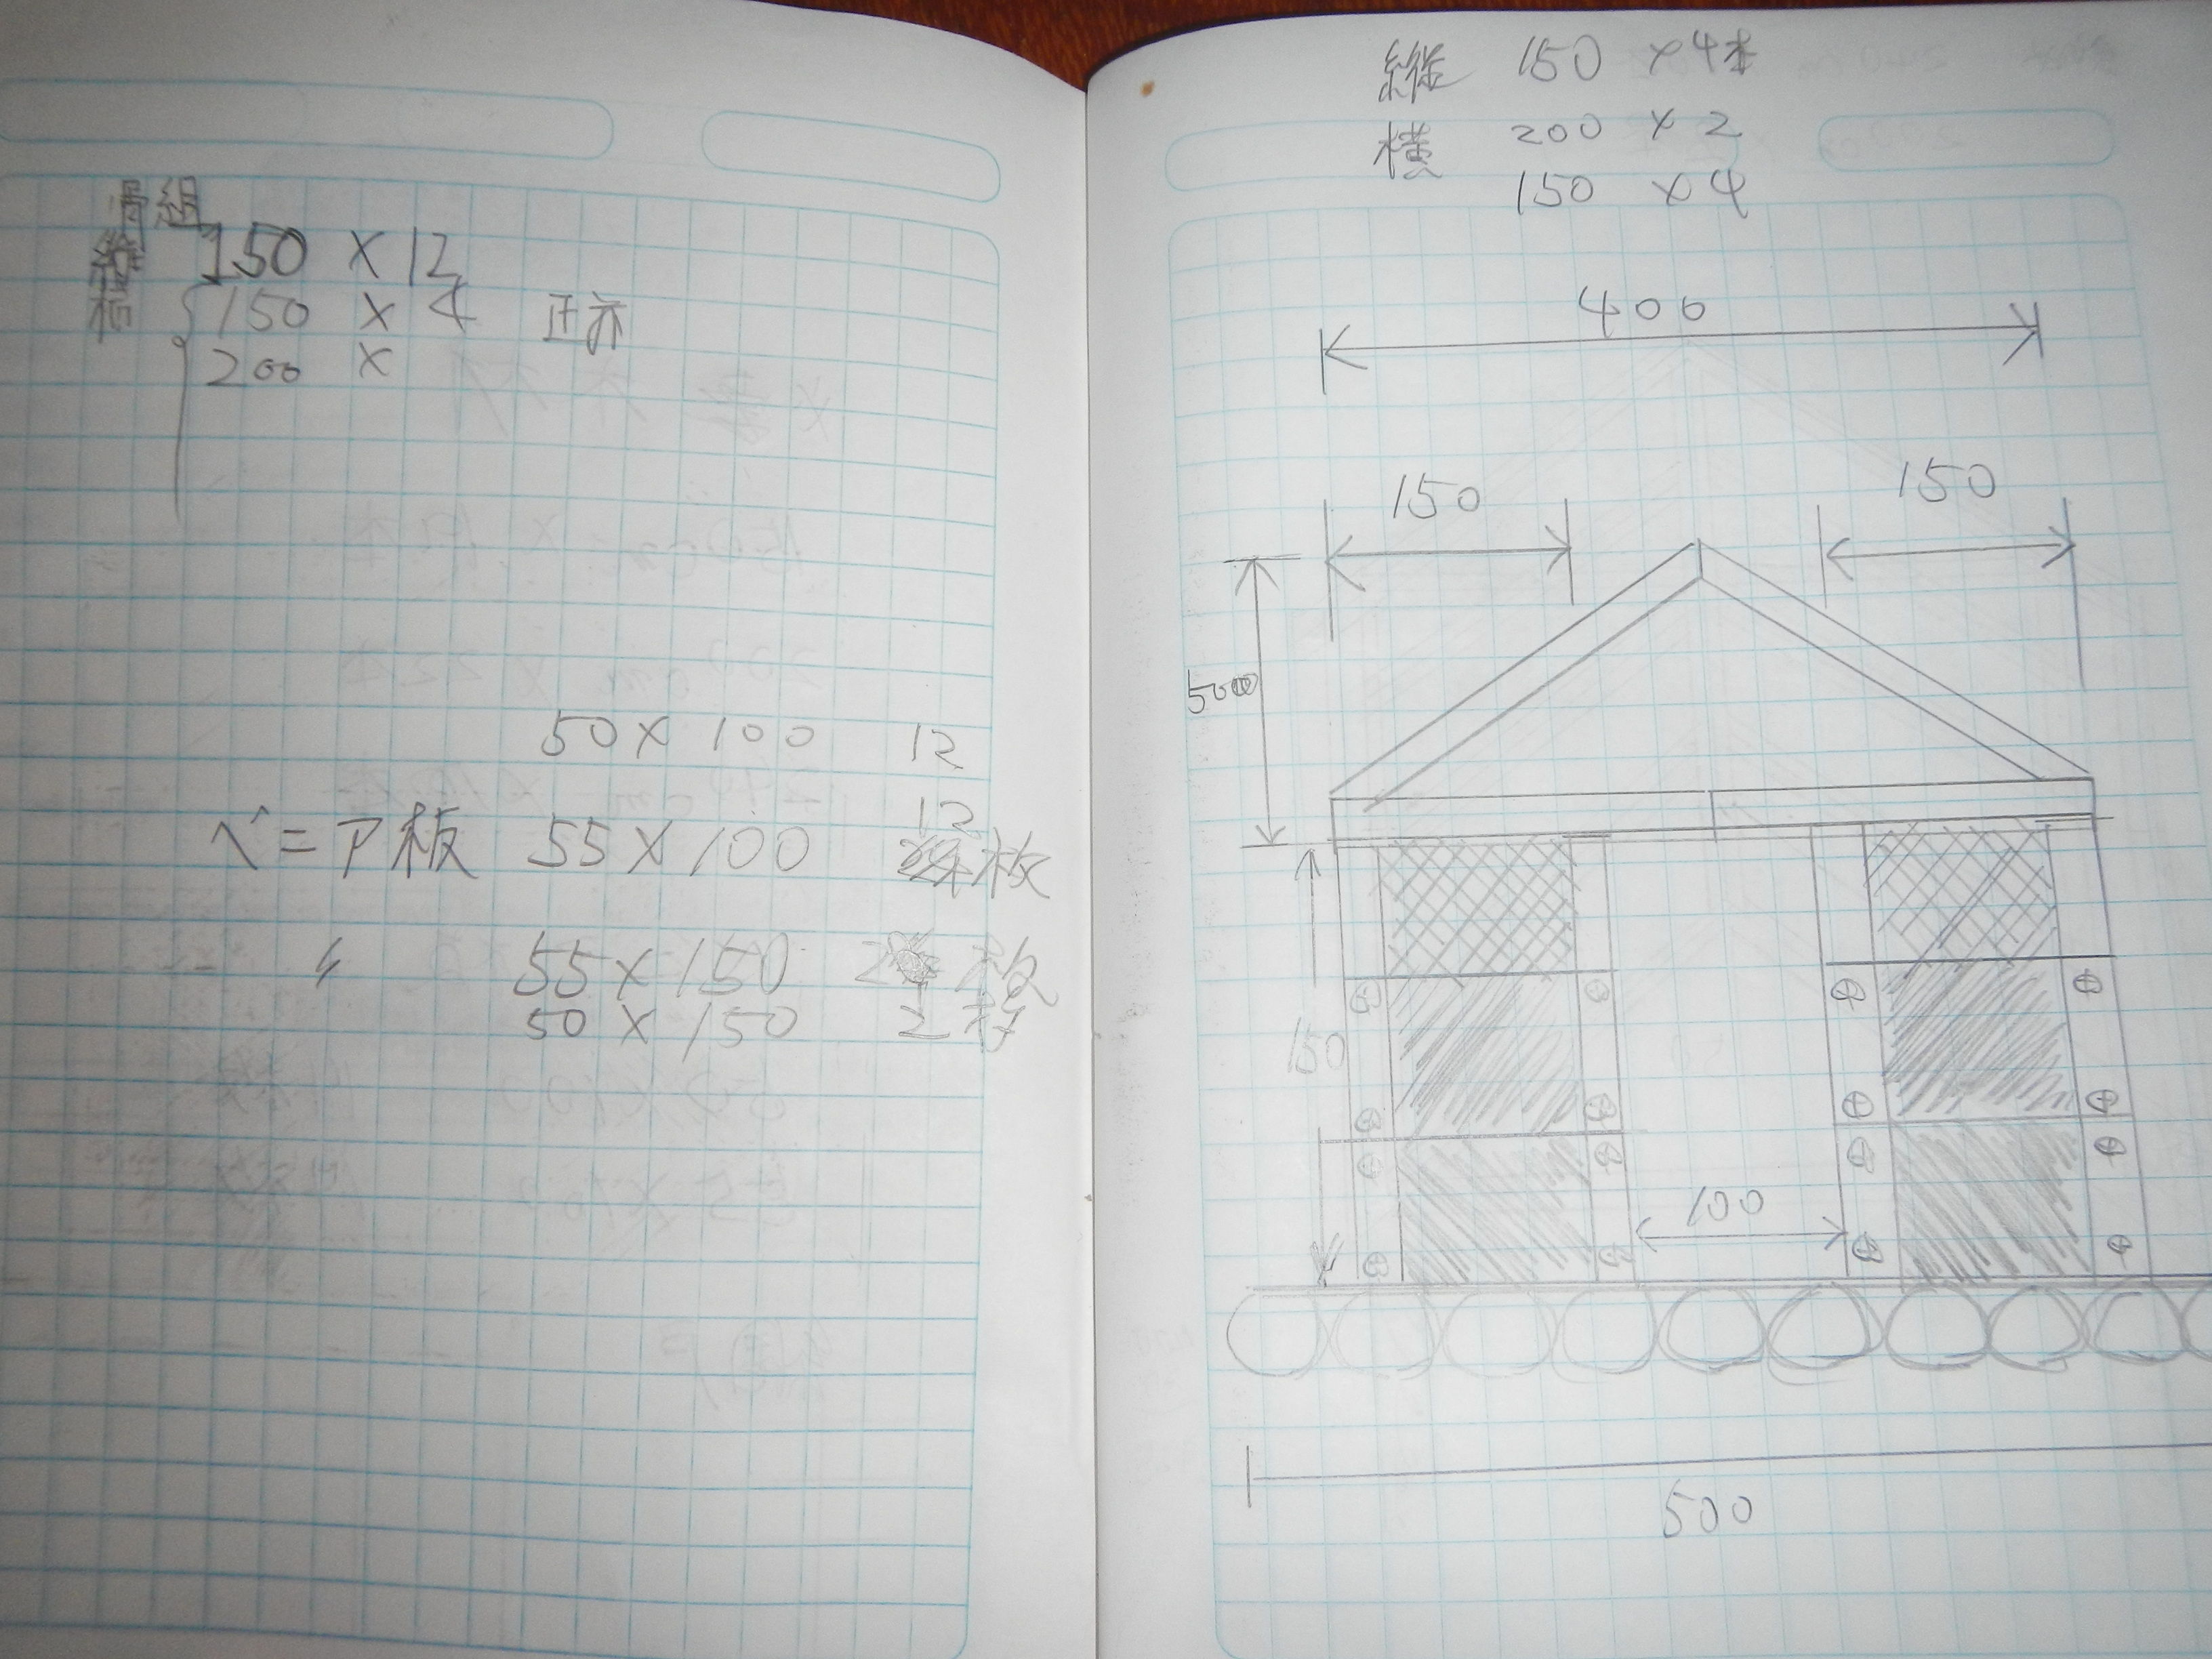 骨組
縦 150 × 12
横 150 × 4
200 ×
50 × 100 12
ベニア板 55 × 100 12 枚
〃 55 × 150 2 枚
50 × 150 2 枚
縦 150 × 4本
横 200 × 2
150 × 4
400
150
150
500
150
100
500